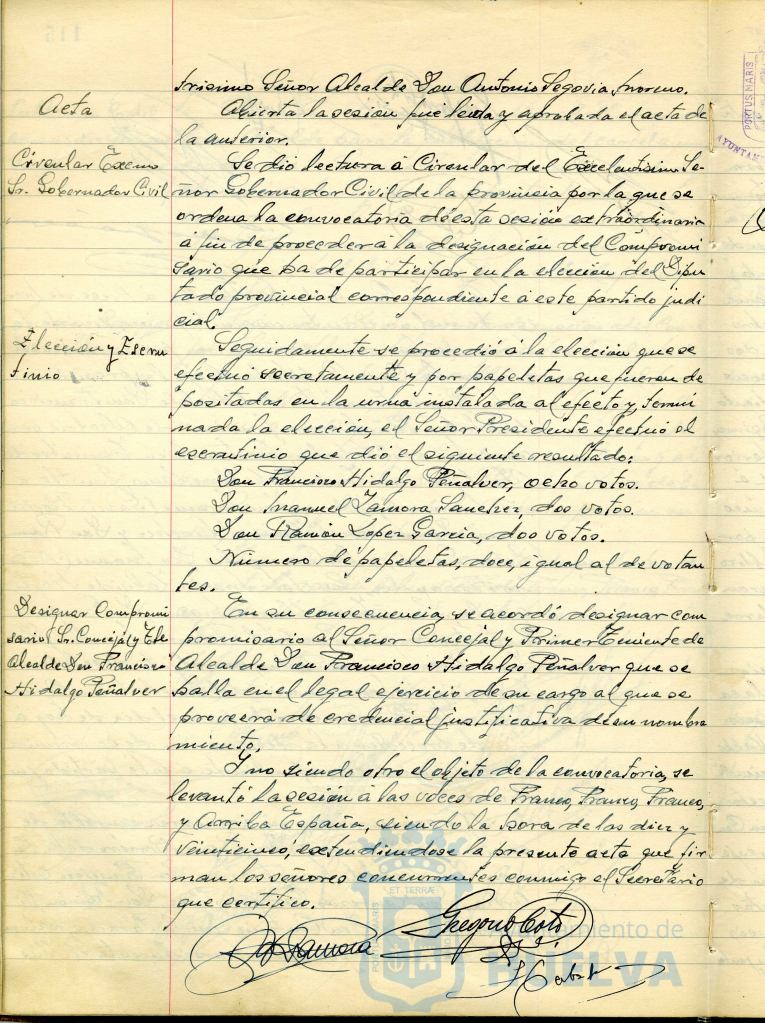 trisimo Señor Alcalde Don Antonio Segovia Moreno.
Acta
Abierta la sesión fué leida y aprobada el acta de
la anterior.
Circular Excmo
Sr. Gobernador Civil
Se dió lectura á Circular del Excelentísimo Se-
ñor Gobernador Civil de la provincia por la que se
ordena la convocatoria de esta sesión extraordinaria
á fin de proceder á la designación del Compromi
sario que ha de participar en la elección del Dipu
tado provincial correspondiente á este partido judi
cial.
Elección y Escru
tinio
Seguidamente se procedió á la elección que se
efectuó secretamente y por papeletas que fueron de
positadas en la urna instalada al efecto y, termi
nada la elección, el Señor Presidente efectuó el
escrutinio que dió el siguiente resultado:
Don Francisco Hidalgo Peñalver, ocho votos.
Don Manuel Zamora Sanchez, dos votos.
Don Ramón Lopez Garcia, dos votos.
Número de papeletas, doce, igual al de votan
tes.
Designar Compromi
sario Sr. Concejal y Tte
Alcalde Don Francisco
Hidalgo Peñalver
En su consecuencia, se acordó designar com
promisario al Señor Concejal y Primer Teniente de
Alcalde Don Francisco Hidalgo Peñalver que se
halla en el legal ejercicio de su cargo al que se
proveerá de credencial justificativa de su nombra
miento.
Y no siendo otro el objeto de la convocatoria, se
levantó la sesión á las voces de Franco, Franco, Franco,
y Arriba España, siendo la hora de las diez y
veinticinco, extendiendose la presente acta que fir
man los señores concurrentes conmigo el Secretario
que certifico.
Zamora
Gregorio Coto
Ayuntamiento de
HUELVA
PORTUS MARIS
ET TERRAE
PORTUS MARIS
AYUNTAM
115